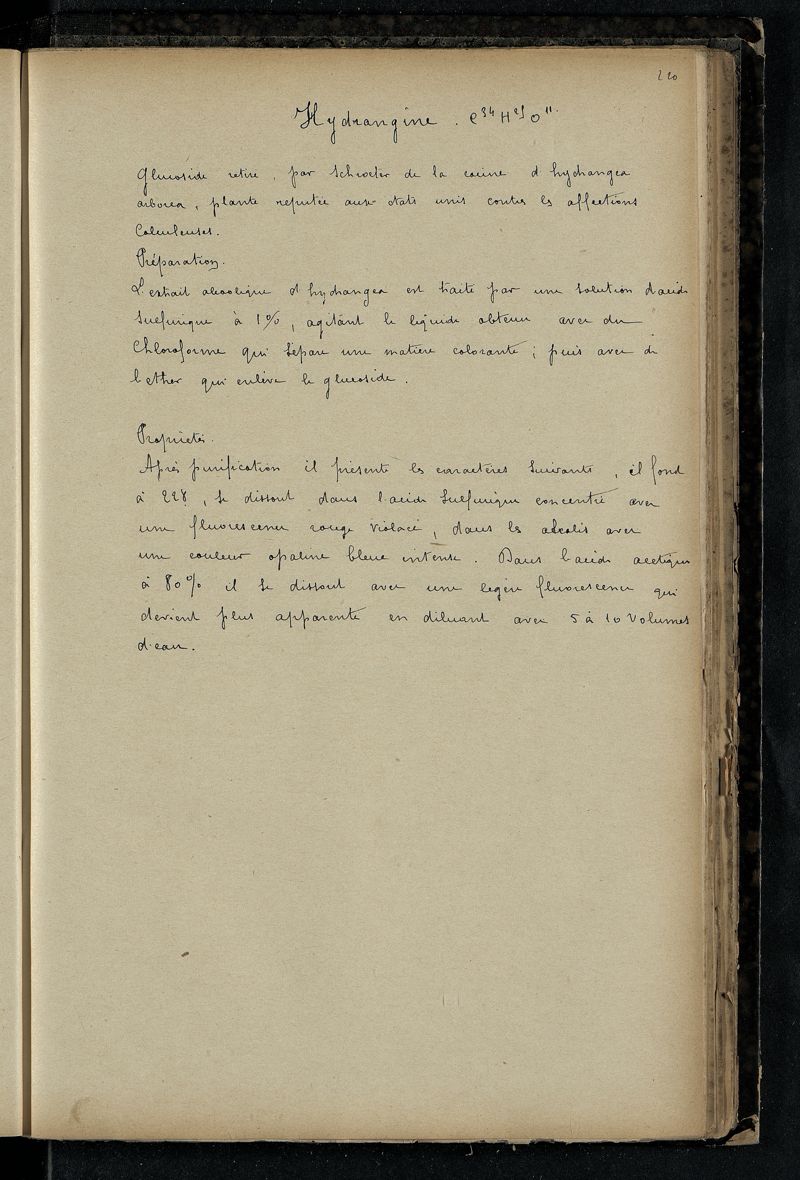 220
Hydrangine. C³⁴H²⁵O¹¹.
Glucoside retiré, par Schroeter de la racine d'hydrangea
arborea, plante reputée aux états unis contre les affections
Calculeuses.
Préparation.
L'extrait alcoolique d'hydrangea est traité par une solution d'acide
sulfurique à 1%, agitant le liquide obtenu avec du
Chloroforme qui sépare une matière colorante; puis avec de
l'ether qui enlève le glucoside.
Propriétés.
Après purification il présente les caractères suivants, il fond
à 228, se dissout dans l'acide sulfurique concentré avec
une fluorescence rouge violacé, dans les alcalis avec
une couleur opaline bleue intense. Dans l'acide acetique
à 80% il se dissout avec une legère fluorescence qui
devient plus apparente en diluant avec 5 à 10 volumes
d'eau.